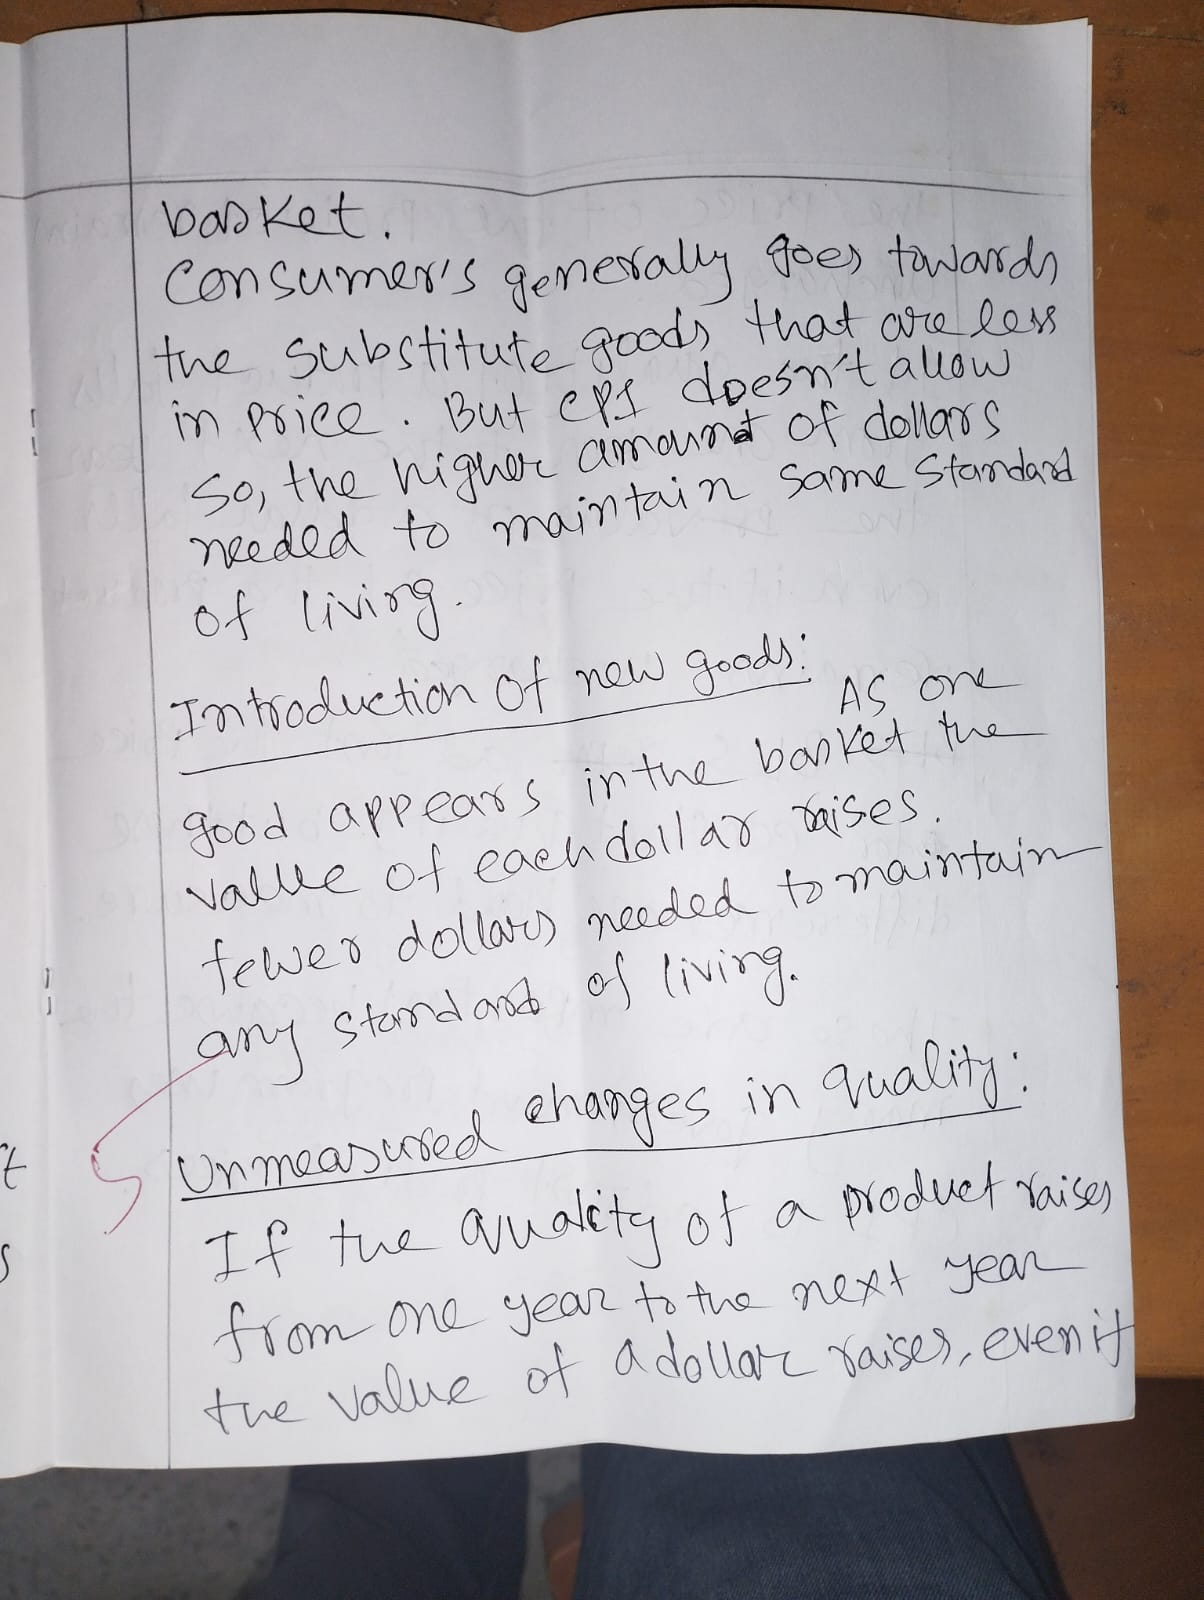 basket.
Consumer's generally goes towards
the substitute goods that are less
in price. But CPI doesn't allow
so, the higher amount of dollars
needed to maintain same standard
of living.
Introduction of new goods:
As one
good appears in the basket the
value of each dollar raises.
fewer dollars needed to maintain
any standard of living.
Unmeasured changes in quality:
If the quality of a product raises
from one year to the next year
the value of a dollar raises, even if